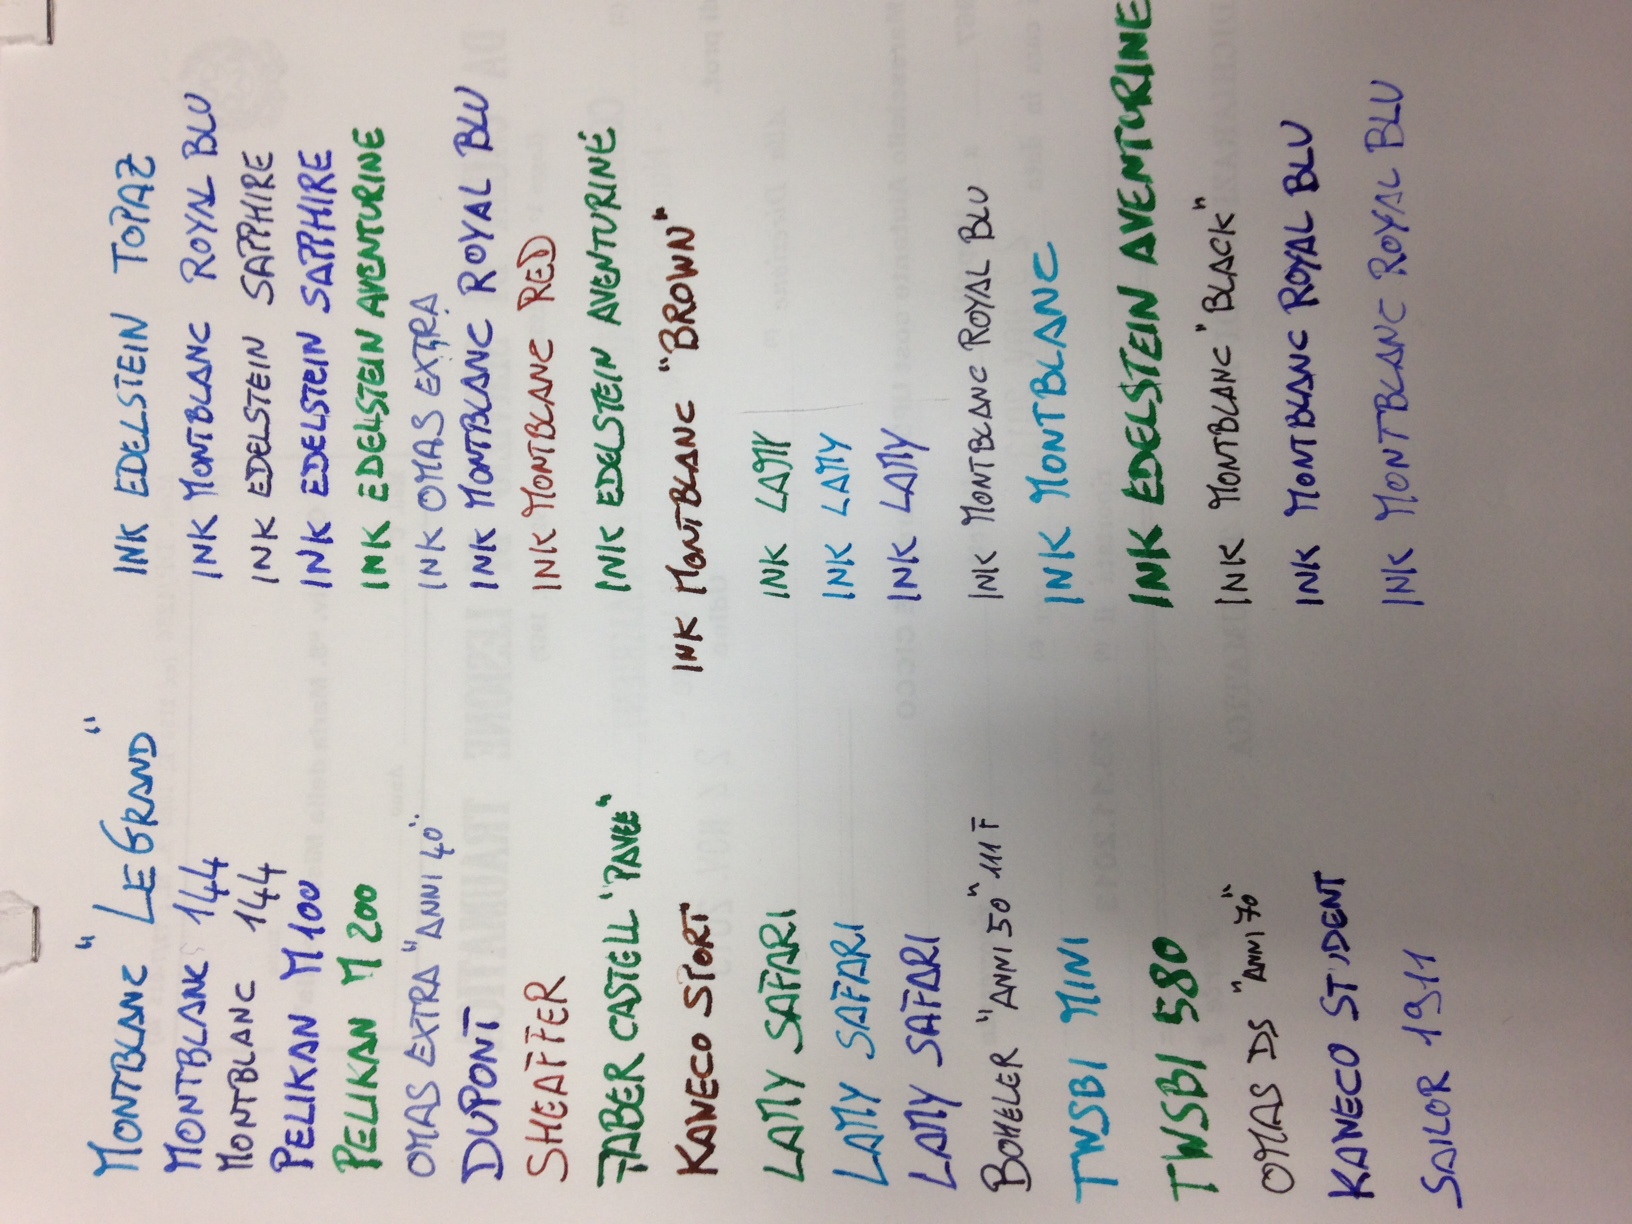 MONTBLANC "LEGRAND" INK EDELSTEIN TOPAZ
MONTBLANC 144 INK MONTBLANC ROYAL BLU
MONTBLANC 144 INK EDELSTEIN SAPPHIRE
PELIKAN M100 INK EDELSTEIN SAPPHIRE
PELIKAN M200 INK EDELSTEIN AVENTURINE
OMAS EXTRA "ANNI 40" INK OMAS EXTRA
DUPONT INK MONTBLANC ROYAL BLU
SHEAFFER INK MONTBLANC RED
FABER CASTELL "PAVEE" INK EDELSTEIN AVENTURINE
KANECO SPORT INK MONTBLANC "BROWN"
LAMY SAFARI INK LAMY
LAMY SAFARI INK LAMY
LAMY SAFARI INK LAMY
BOHELER "ANNI 50" 111 F INK MONTBLANC ROYAL BLU
TWSBI MINI INK MONTBLANC
TWSBI 580 INK EDELSTEIN AVENTURINE
OMAS DS "ANNI 70" INK MONTBLANC "BLACK"
KANECO STUDENT INK MONTBLANC ROYAL BLU
SAILOR 1911 INK MONTBLANC ROYAL BLU